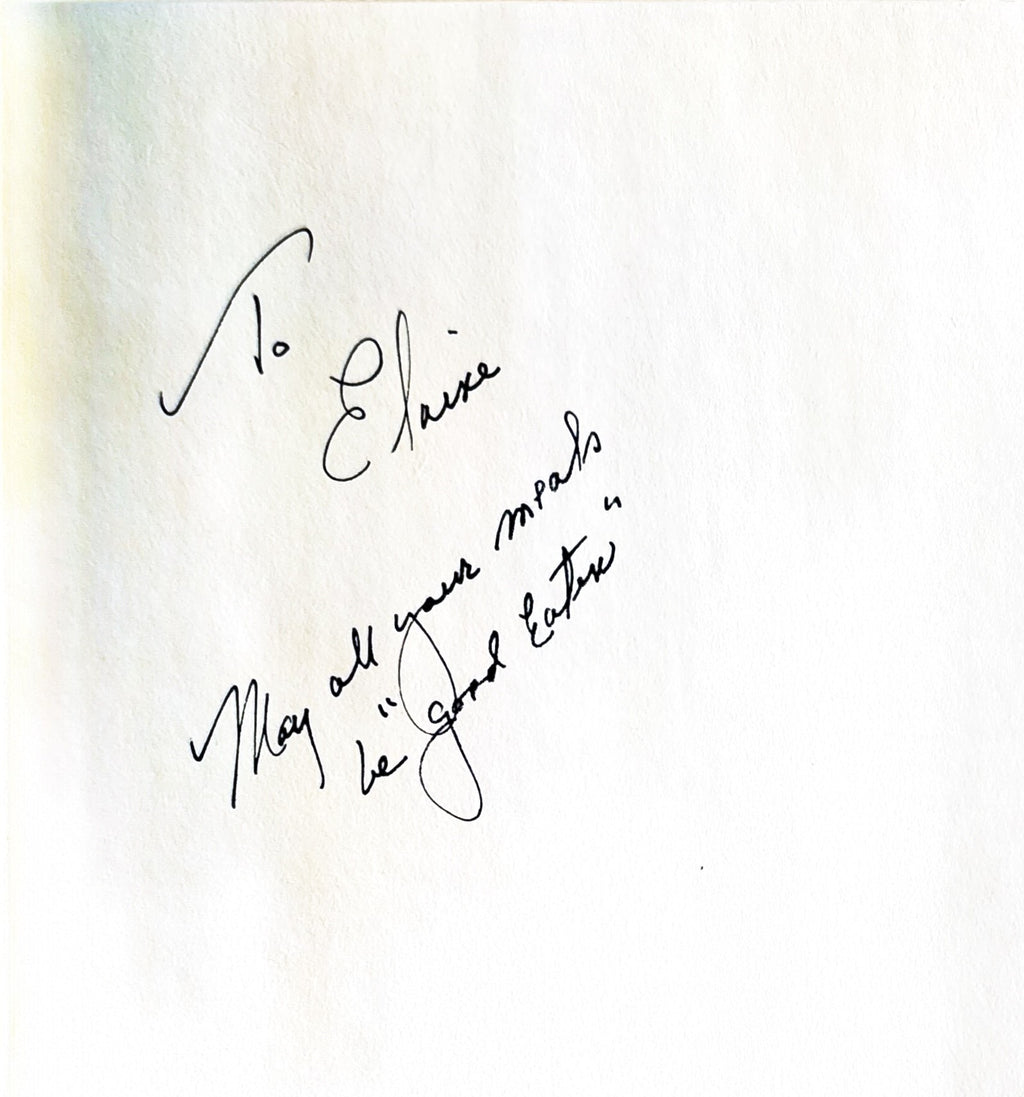 To
Elaine
May all your meals
be "Good Eaten"